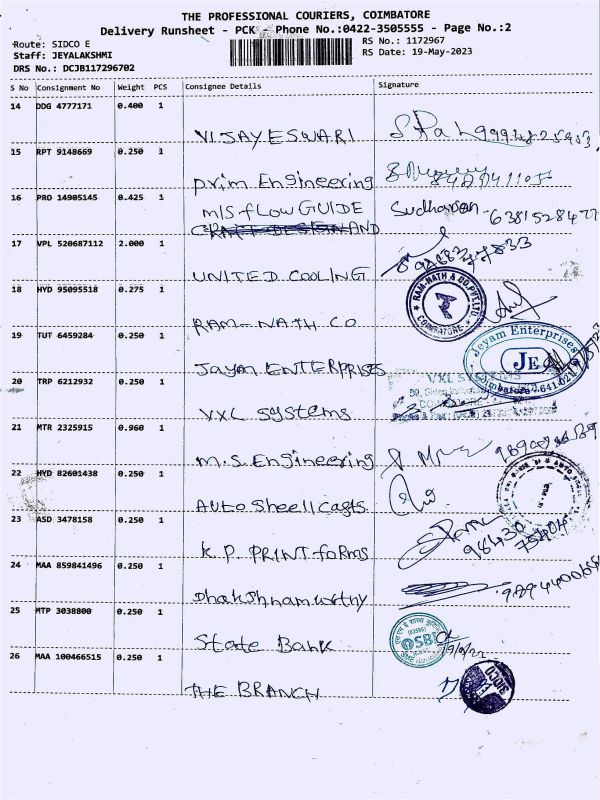 THE PROFESSIONAL COURIERS, COIMBATORE
Delivery Runsheet - PCK - Phone No.:0422-3505555 - Page No.:2
Route: SIDCO E
RS No.: 1172967
Staff: JEYALAKSHMI
RS Date: 19-May-2023
DRS No.: DCJB117296702
S No Consignment No Weight PCS Consignee Details Signature
14 DDG 4777171 0.400 1
VIJAYESWARI
15 RPT 9148669 0.250 1
prim Engineering
16 PRO 14905145 0.425 1
M/S flow GUIDE
AND
Sudharsan - 63815284
17 VPL 520687112 2.000 1
UNITED COOLING
18 HYD 95095518 0.275 1
RAM-NATH & CO.PVT.LTD
COIMBATORE
RAM-NATH CO
19 TUT 6459284 0.250 1
Jeyam Enterprises
JE
Coimbatore - 641 021
JAYAM ENTERPRISES
20 TRP 6212932 0.250 1
VXL SYSTEMS
VXL systems
21 MTR 2325915 0.960 1
M.S. Engineering
22 HYD 82601438 0.250 1
Auto sheellcasts
23 ASD 3478158 0.250 1
K.P. PRINT forms
98430
24 MAA 859841496 0.250 1
Dhakshnamurthy
25 MTP 3038800 0.250 1
State Bank
SBI
26 MAA 100466515 0.250 1
THE BRANCH
SIDCO